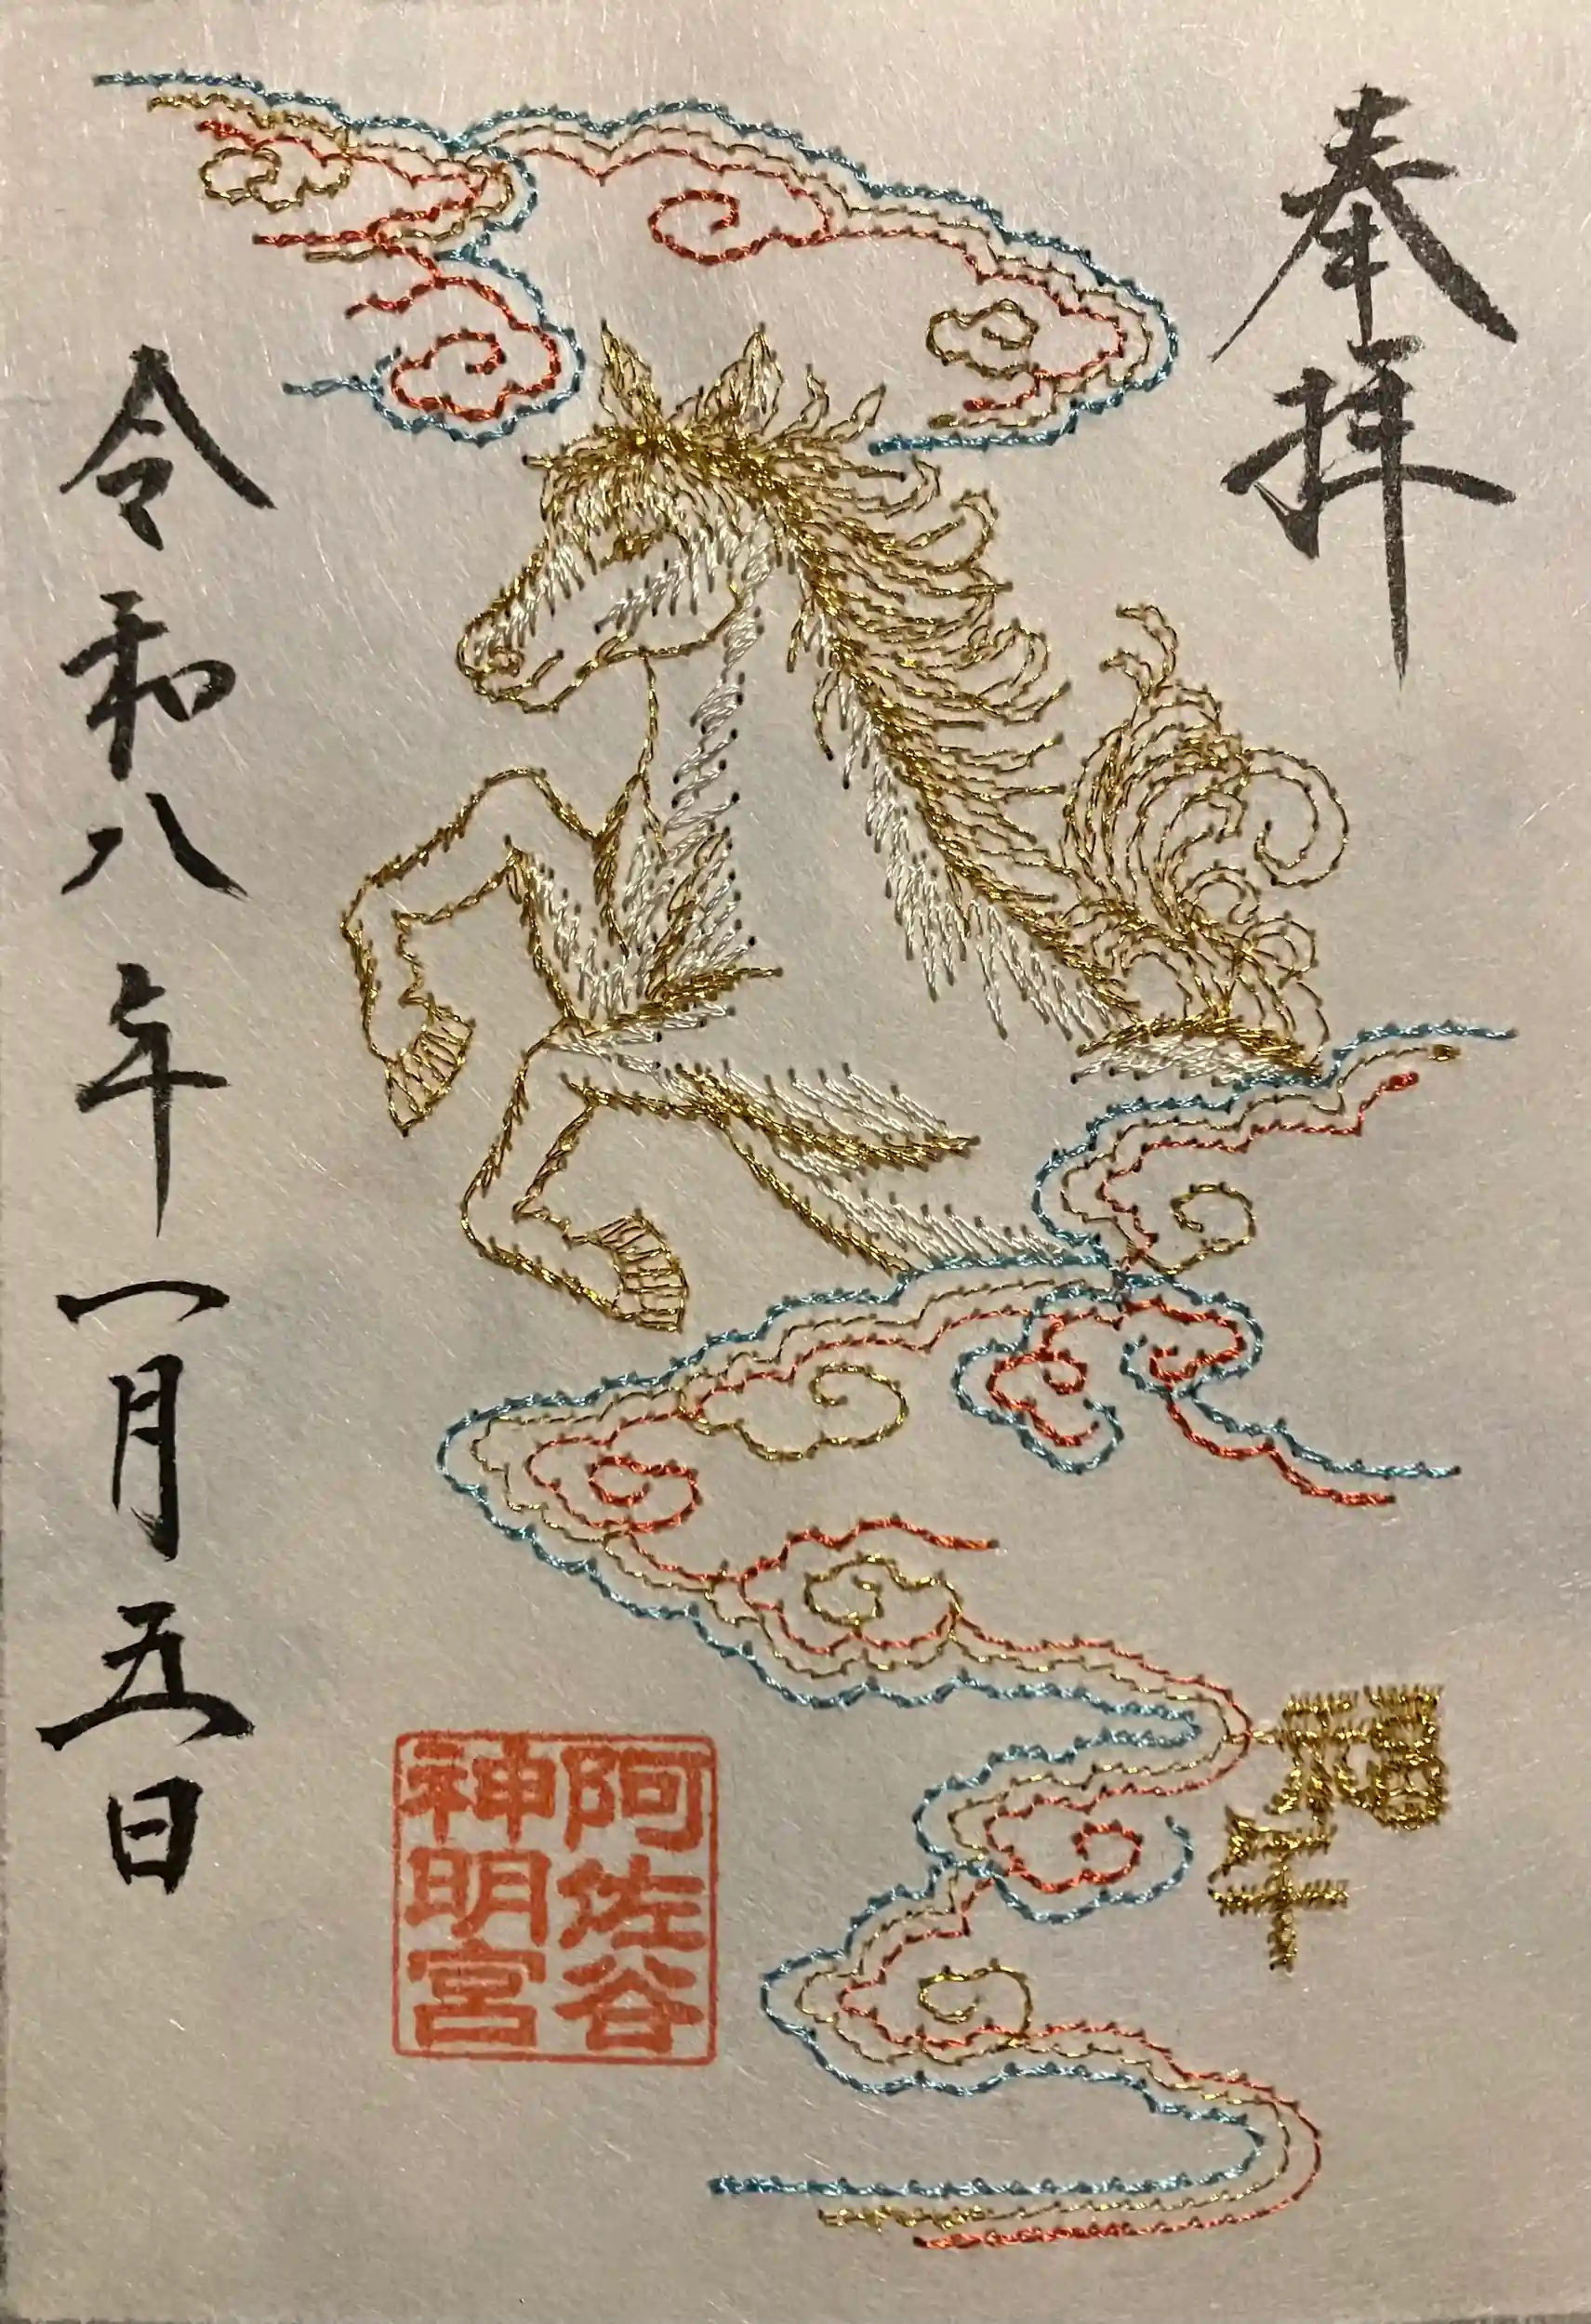 奉拝
福
午
阿佐谷
神明宮
令和八年一月五日